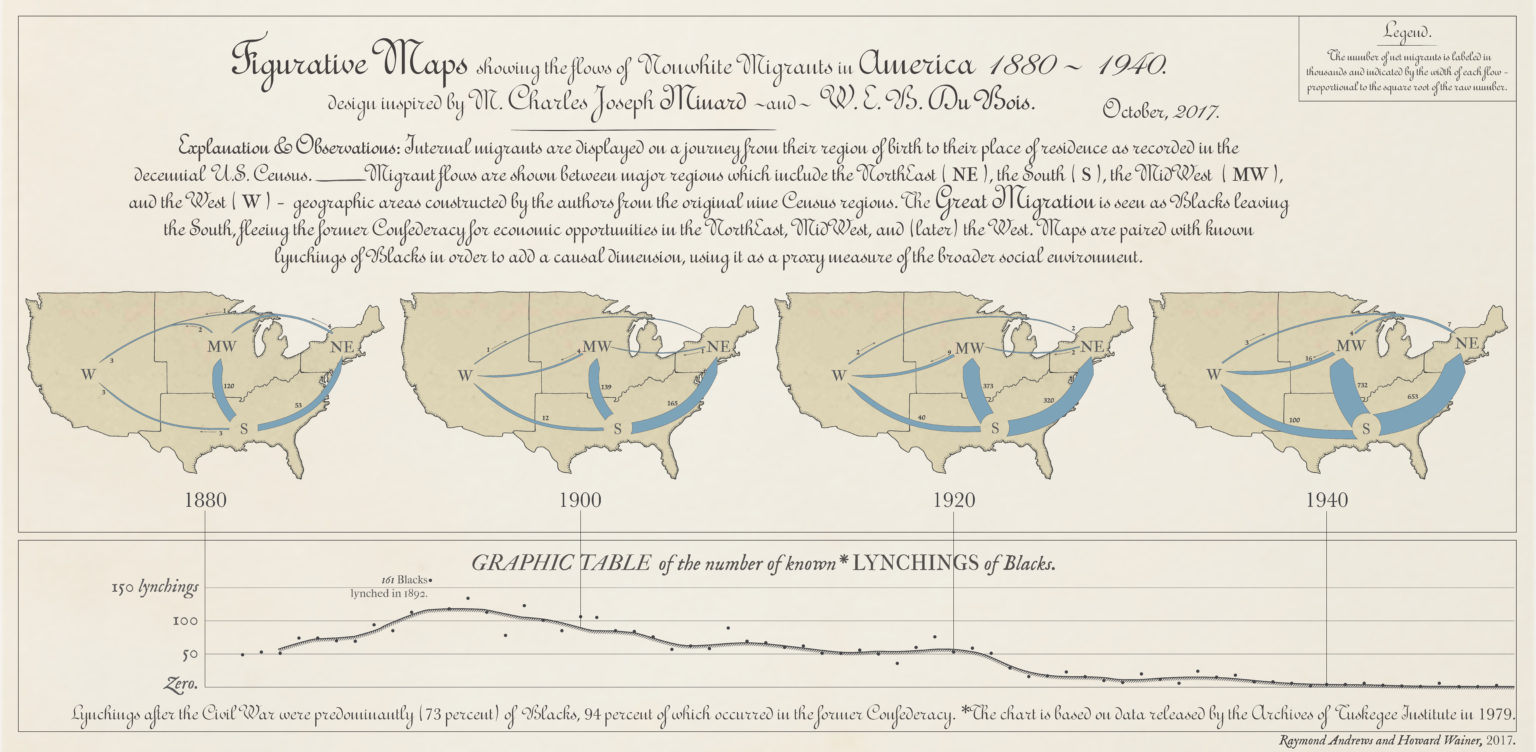 Figurative Maps showing the flows of Nonwhite Migrants in America 1880 ~ 1940.
design inspired by M. Charles Joseph Minard ~and~ W. E. B. Du Bois.
October, 2017.
Legend.
The number of net migrants is labeled in
thousands and indicated by the width of each flow -
proportional to the square root of the raw number.
Explanation & Observations: Internal migrants are displayed on a journey from their region of birth to their place of residence as recorded in the
decennial U.S. Census. ____Migrant flows are shown between major regions which include the NorthEast ( NE ), the South ( S ), the MidWest ( MW ),
and the West ( W ) - geographic areas constructed by the authors from the original nine Census regions. The Great Migration is seen as Blacks leaving
the South, fleeing the former Confederacy for economic opportunities in the NorthEast, MidWest, and (later) the West. Maps are paired with known
lynchings of Blacks in order to add a causal dimension, using it as a proxy measure of the broader social environment.
1
2
4
MW
NE
3
W
3
120
53
3
S
1880
1
4
MW
1
NE
W
139
165
12
S
1900
2
2
9
MW
2
NE
W
373
320
40
S
1920
7
4
3
MW
NE
16
W
732
653
100
S
1940
GRAPHIC TABLE of the number of known* LYNCHINGS of Blacks.
161 Blacks
lynched in 1892.
150 lynchings
100
50
Zero.
Lynchings after the Civil War were predominantly (73 percent) of Blacks, 94 percent of which occurred in the former Confederacy. *The chart is based on data released by the Archives of Tuskegee Institute in 1979.
Raymond Andrews and Howard Wainer, 2017.